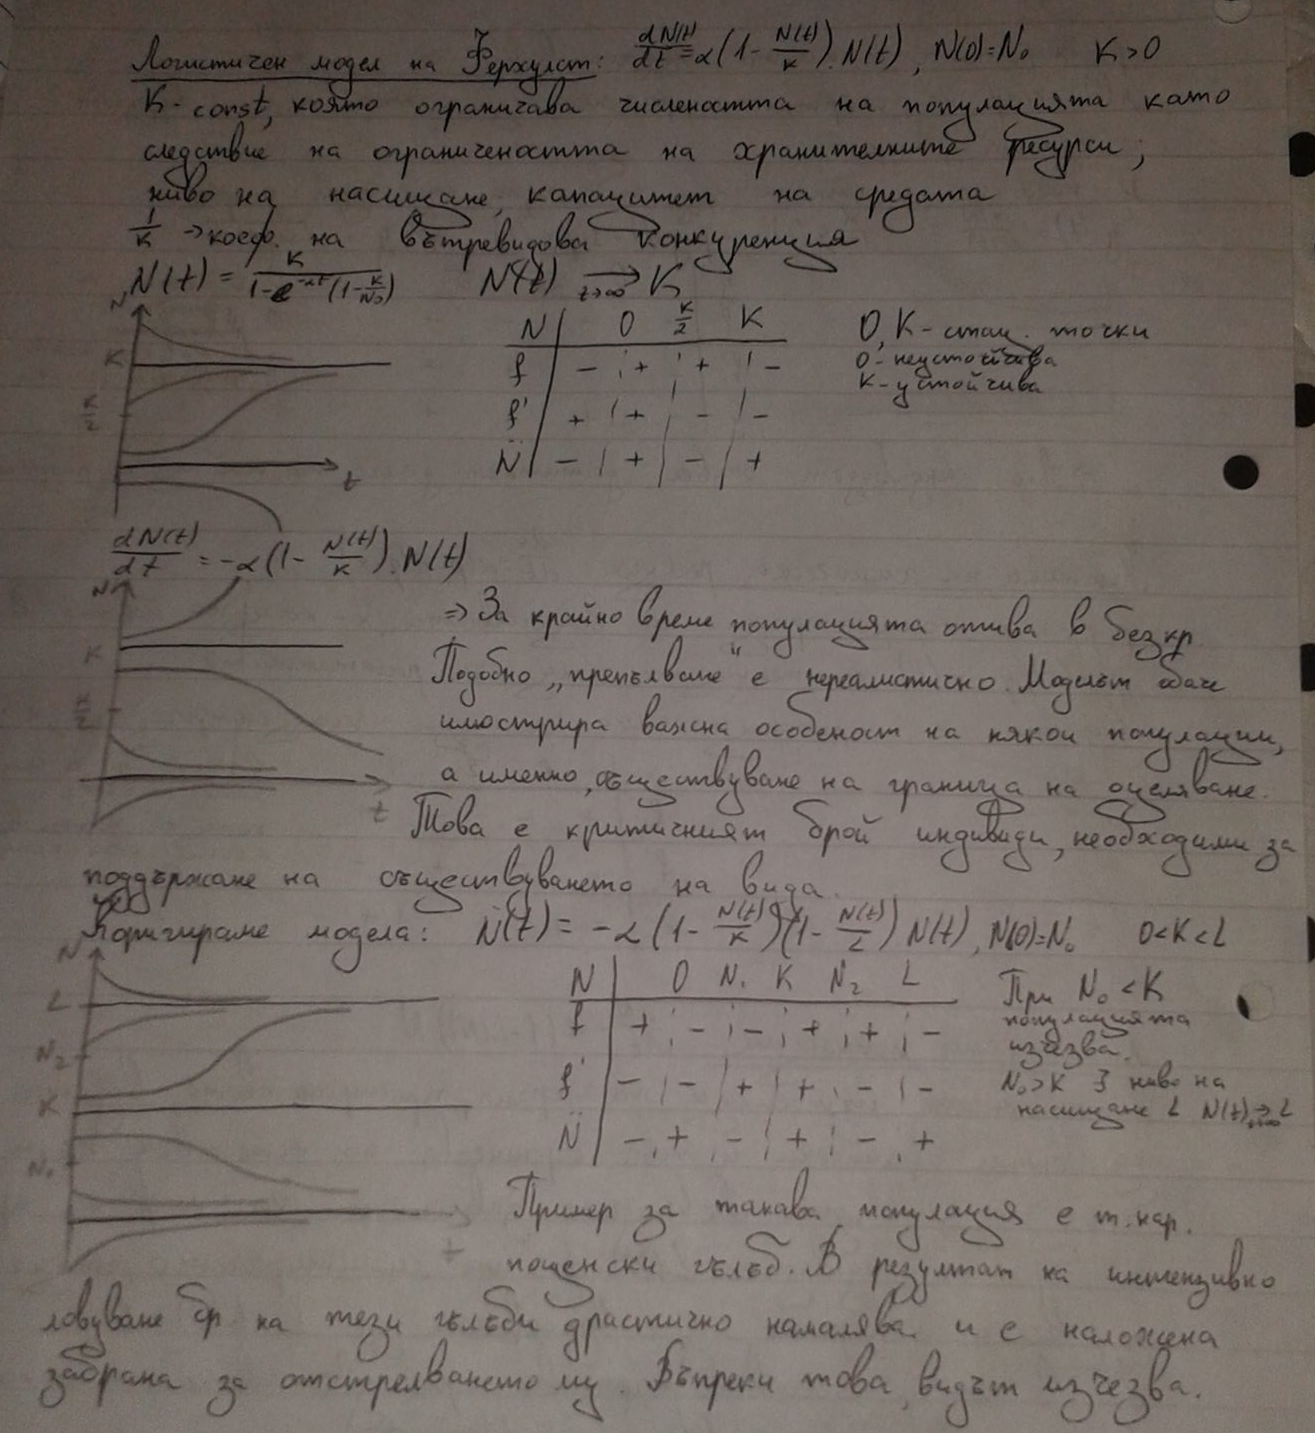 Логистичен модел на Ферхулст: dN(t)/dt = α(1 - N(t)/K).N(t), N(0)=N₀ K>0
K - const, която ограничава числеността на популацията като
следствие на ограничеността на хранителните ресурси;
ниво на насищане, капацитет на средата
1/K → коеф. на вътревидова конкуренция
N(t) = K/(1-e^(-αt)(1-K/N₀)) N(t) → K
t→∞
N
K
K/2
t
N | 0 K/2 K
f | - + + -
f' | + + - -
N̈ | - + - +
0, K - стац. точки
0 - неустойчива
K - устойчива
dN(t)/dt = -α(1 - N(t)/K).N(t)
N
K
K/2
t
=> За крайно време популацията отива в безкр.
Подобно „препълване" е нереалистично. Моделът обаче
илюстрира важна особеност на някои популации,
а именно, съществуване на граница на оцеляване.
Това е критичният брой индивиди, необходими за
поддържане на съществуването на вида.
Коригираме модела: Ṅ(t) = -α(1 - N(t)/K)(1 - N(t)/L) N(t), N(0)=N₀ 0<K<L
N
L
N₂
K
N₁
t
N | 0 N₁ K N₂ L
f | + - - + + -
f' | - - + + - -
N̈ | - + - + - +
При N₀ < K
популацията
изчезва.
N₀>K ∃ ниво на
насищане L N(t) → L
t→∞
Пример за такава популация е т.нар.
пощенски гълъб. В резултат на интензивно
ловуване бр. на тези гълъби драстично намалява и е наложена
забрана за отстрелването му. Въпреки това, видът изчезва.